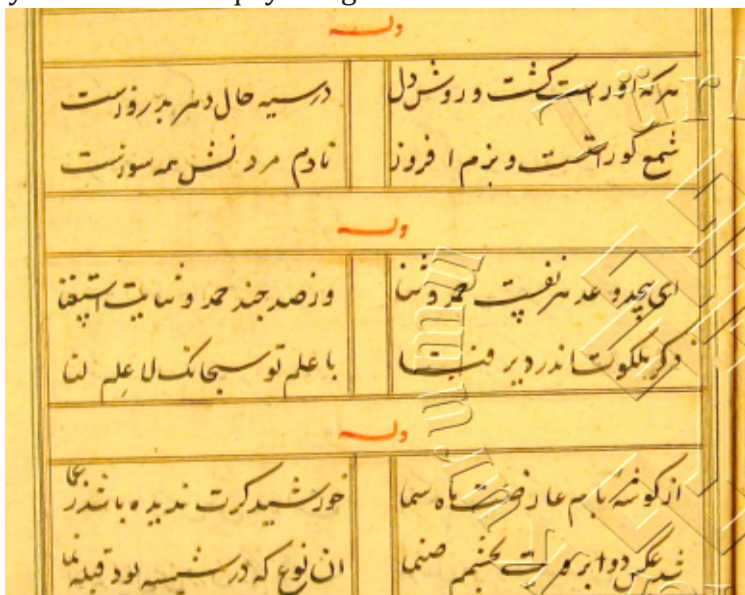 وله
هر که او راست گشت و روشن دل در سیه حال دهر بدروزست
شمع کو راستست و بزم افروز تا دم مردنش همه سوزست
وله
ای بیحد و عد هر نفست حمد و ثنا وز صد چند حمد و ثنایت استغنا
ملکوت اندر دیر فنا با علم تو سبحانک لا علم لنا
وله
از کوشه بام عارضت ماه سما خورشید کرت ندیده باشد
شد عکس دو ابرویت بچشمم صنما ان نوع که در شیشه بود قبله نما